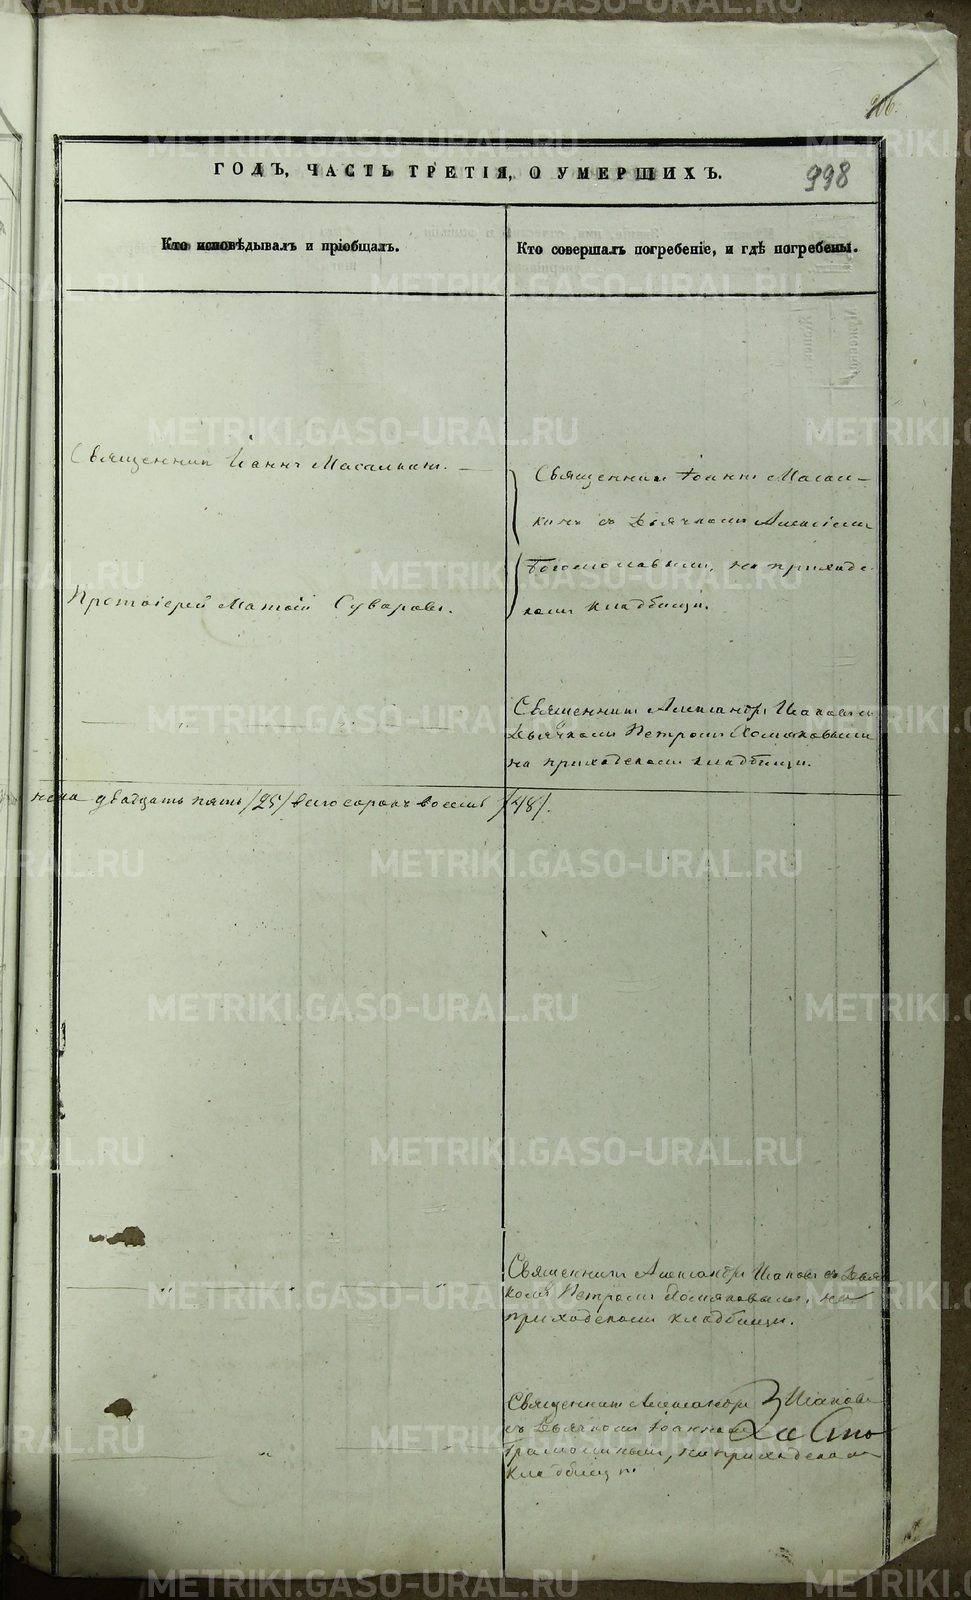 206.
998
ГОДЪ, ЧАСТЬ ТРЕТІЯ, О УМЕРШИХЪ.
Кто исповѣдывалъ и пріобщалъ.
Кто совершалъ погребеніе, и гдѣ погребены.
Священник Іоаннъ
Священник Іоаннъ
съ Дьячкомъ Алексіемъ
Богословымъ, на приходс-
комъ кладбищи.
Протоіерей Матфій Суворовъ.
Священник Александръ
Дьячкомъ Петромъ Хомяковымъ
на приходскомъ кладбищи.
двадцать пять /25/ всего сорокъ восемь /48/.
Священник Александръ съ Дьяч
комъ Петромъ Хомяковымъ, на
приходскомъ кладбищи.
Священник Александръ
съ Дьячкомъ Іоанномъ
на приходском
кладбищи
METRIKI.GASO-URAL.RU